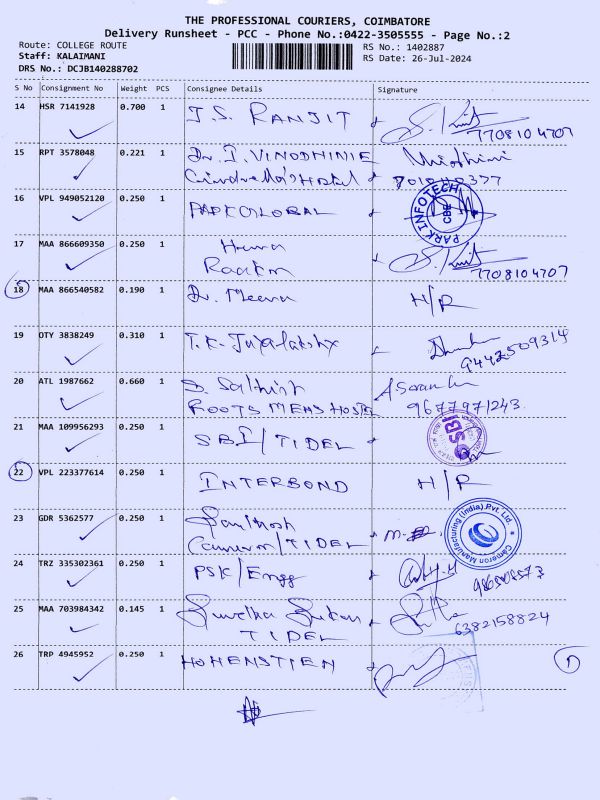 THE PROFESSIONAL COURIERS, COIMBATORE
Delivery Runsheet - PCC - Phone No.:0422-3505555 - Page No.:2
Route: COLLEGE ROUTE RS No.: 1402887
Staff: KALAIMANI RS Date: 26-Jul-2024
DRS No.: DCJB140288702
S No Consignment No Weight PCS Consignee Details Signature
14 HSR 7141928 0.700 1 J.S. RANJIT
7708104707
15 RPT 3578048 0.221 1 Dr. I. VINODHINIE
Hostel
16 VPL 949052120 0.250 1 PARK GLOBAL
PARK INFOTECH CBE
17 MAA 866609350 0.250 1
7708104707
18 MAA 866540582 0.190 1 Dr. Meera H/R
19 OTY 3838249 0.310 1 T.K.
9442509314
20 ATL 1987662 0.660 1
ROOTS MENS HOSTEL 9677971243
21 MAA 109956293 0.250 1 SBI/TIDEL
SBI
22 VPL 223377614 0.250 1 INTERBOND H/R
23 GDR 5362577 0.250 1 Santhosh
Cameron/TIDEL
Cameron Manufacturing (India) Pvt. Ltd.
24 TRZ 335302361 0.250 1 PSK/Engg
25 MAA 703984342 0.145 1
TIDEL 6382158824
26 TRP 4945952 0.250 1 HOHENSTIEN